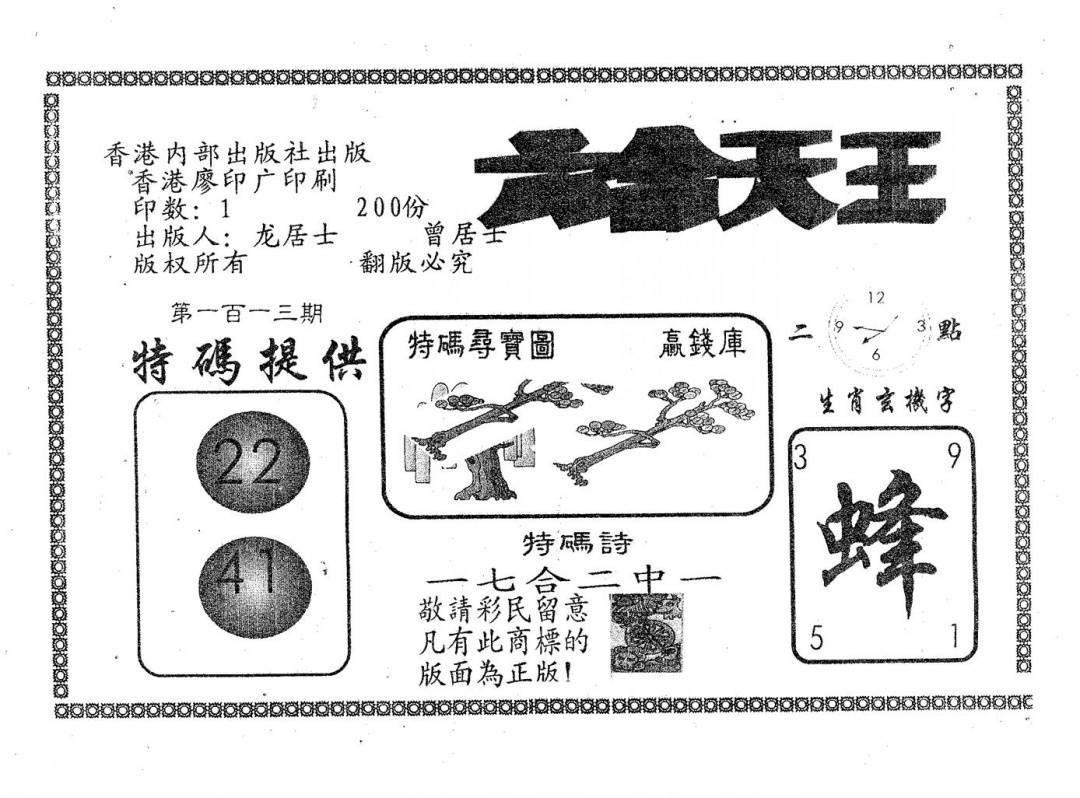 六合天王
香港内部出版社出版
香港廖印广印刷
印数：1 200份
出版人：龙居士 曾居士
版权所有 翻版必究
第一百一十三期
特碼提供
22
41
特碼尋寶圖 贏錢庫
二 點
12
9 3
6
生肖玄機字
3 9
蜂
5 1
特碼詩
一七合二中一
敬請彩民留意
凡有此商標的
版面為正版！